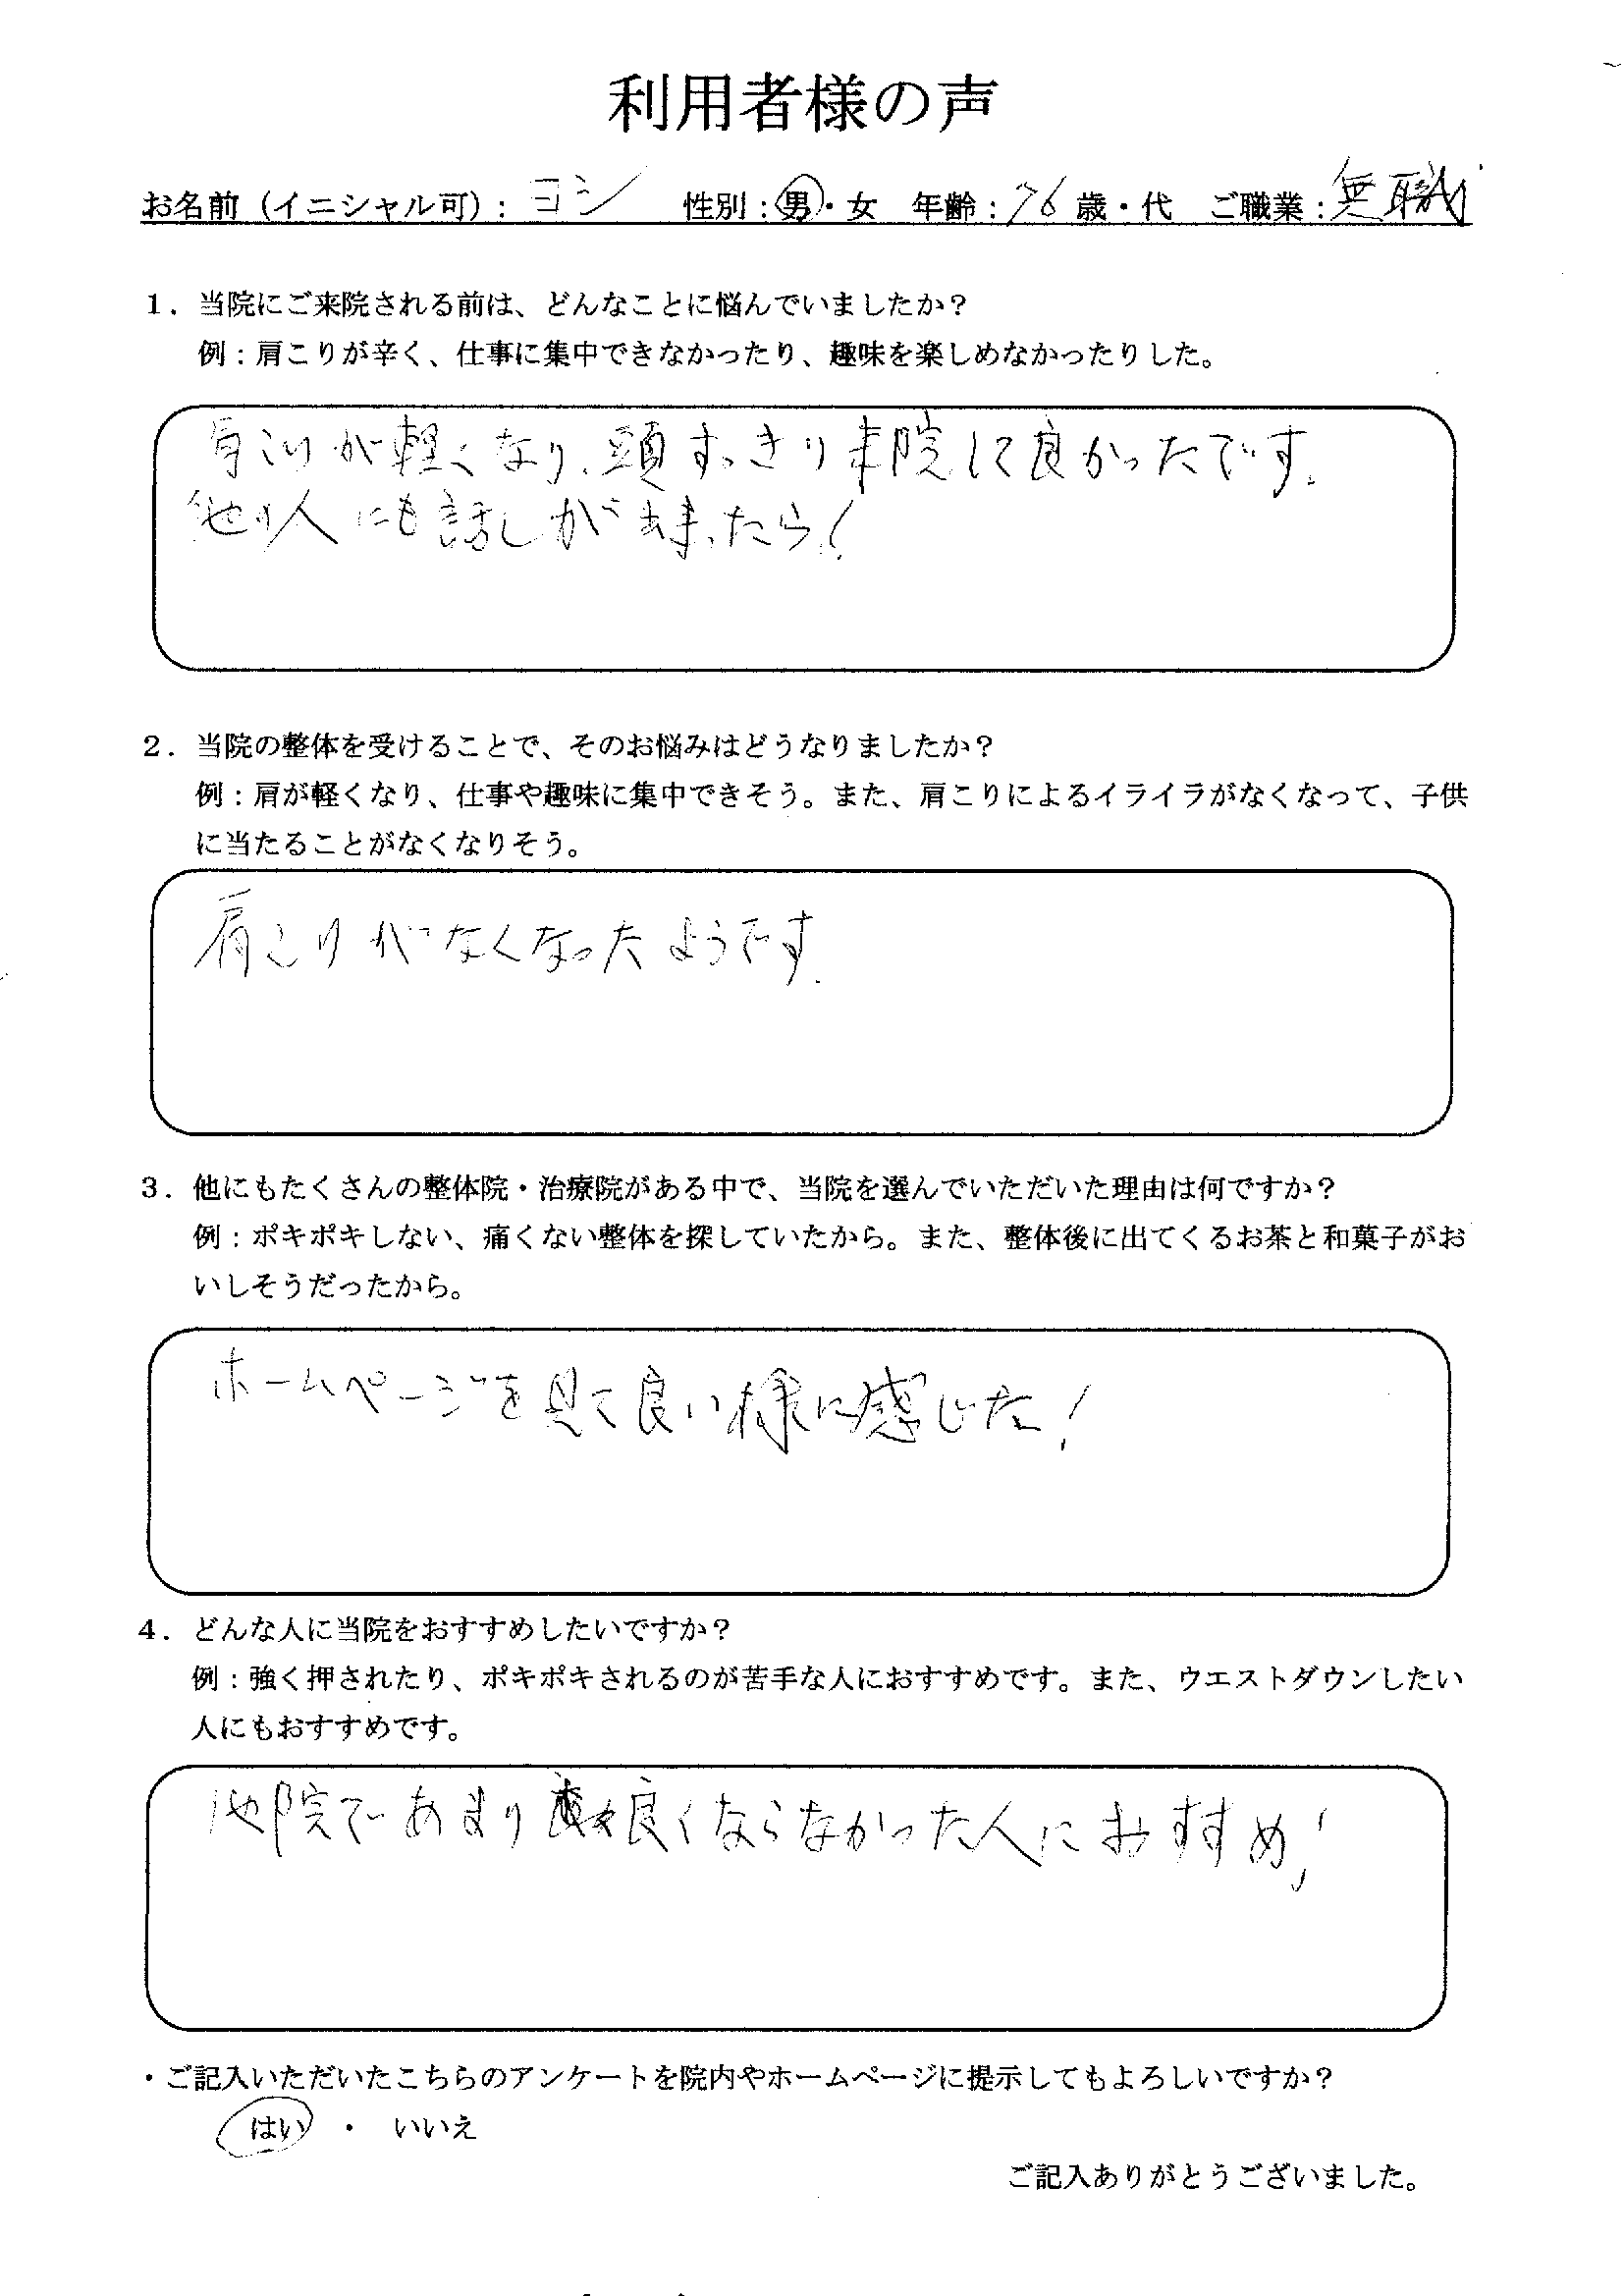 利用者様の声
お名前（イニシャル可）：ヨシ 性別：男・女 年齢：76歳・代 ご職業：無職
１．当院にご来院される前は、どんなことに悩んでいましたか？
例：肩こりが辛く、仕事に集中できなかったり、趣味を楽しめなかったりした。
肩こりが軽くなり、頭すっきり来院して良かったです.
他の人にも話しが
２．当院の整体を受けることで、そのお悩みはどうなりましたか？
例：肩が軽くなり、仕事や趣味に集中できそう。また、肩こりによるイライラがなくなって、子供
に当たることがなくなりそう。
肩こりがなくなったようです.
３．他にもたくさんの整体院・治療院がある中で、当院を選んでいただいた理由は何ですか？
例：ポキポキしない、痛くない整体を探していたから。また、整体後に出てくるお茶と和菓子がお
いしそうだったから。
ホームページを見て良い様に感じた！
４．どんな人に当院をおすすめしたいですか？
例：強く押されたり、ポキポキされるのが苦手な人におすすめです。また、ウエストダウンしたい
人にもおすすめです。
他院であまり良くならなかった人におすすめ！
・ご記入いただいたこちらのアンケートを院内やホームページに提示してもよろしいですか？
はい ・ いいえ
ご記入ありがとうございました。